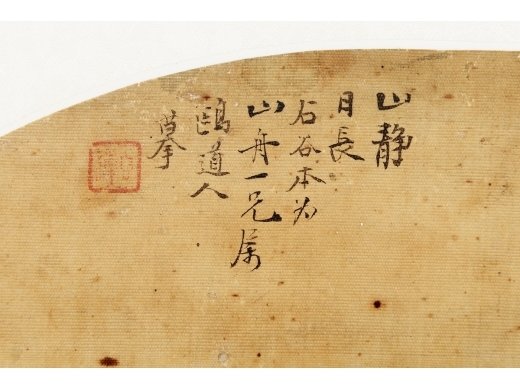 山静
日長
石谷本为
山舟一兄属
鷗道人
摹